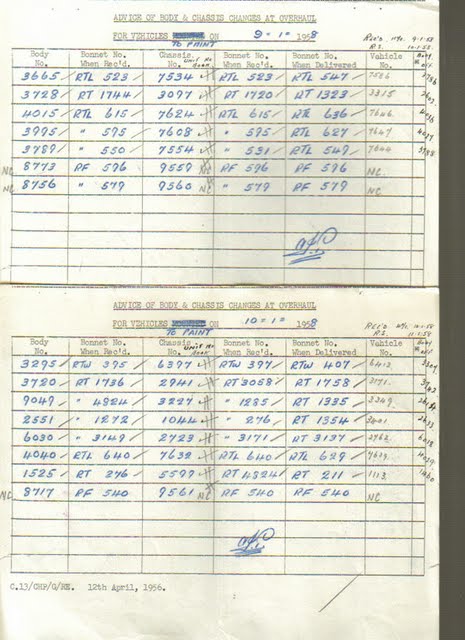 ADVICE OF BODY & CHASSIS CHANGES AT OVERHAUL
FOR VEHICLES ON 9-1- 1958
TO PAINT
Rec'd. 9-1-58
R.S. 10-1-58
Body No. Bonnet No. When Rec'd. Chassis No. Unit No Book Bonnet No. When Rec'd. Bonnet No. When Delivered Vehicle No. Body
3665 RTL 523 7534 RTL 523 RTL 547
3728 RT 1744 3097 RT 1720 RT 1323 3315
4015 RTL 615 7624 RTL 615 RTL 636 7646
3995 " 595 7608 " 595 RTL 627 7647
3789 " 550 7554 " 531 RTL 549 7644
NC 8773 RF 596 9559 NC RF 596 RF 596 NC
NC 8756 " 579 9560 NC " 579 RF 579 NC
ADVICE OF BODY & CHASSIS CHANGES AT OVERHAUL
FOR VEHICLES ON 10-1- 1958
TO PAINT
Rec'd. 10-1-58
R.S. 11-1-58
Body No. Bonnet No. When Rec'd. Chassis No. Unit No Book Bonnet No. When Rec'd. Bonnet No. When Delivered Vehicle No. Body
3295 RTW 395 6397 RTW 397 RTW 407 6412
3720 RT 1736 2941 RT 3058 RT 1758 3171
9049 " 4824 3227 " 1285 RT 1335 3349
2551 " 1272 1044 " 276 RT 1354 3401
6030 " 3149 2723 " 3171 RT 3137 2762
4040 RTL 640 7632 RTL 640 RTL 629 7639
1525 RT 276 5599 RT 4824 RT 211 1113
NC 8717 RF 540 9561 NC RF 540 RF 540 NC
C.13/CHP/G/RE. 12th April, 1956.